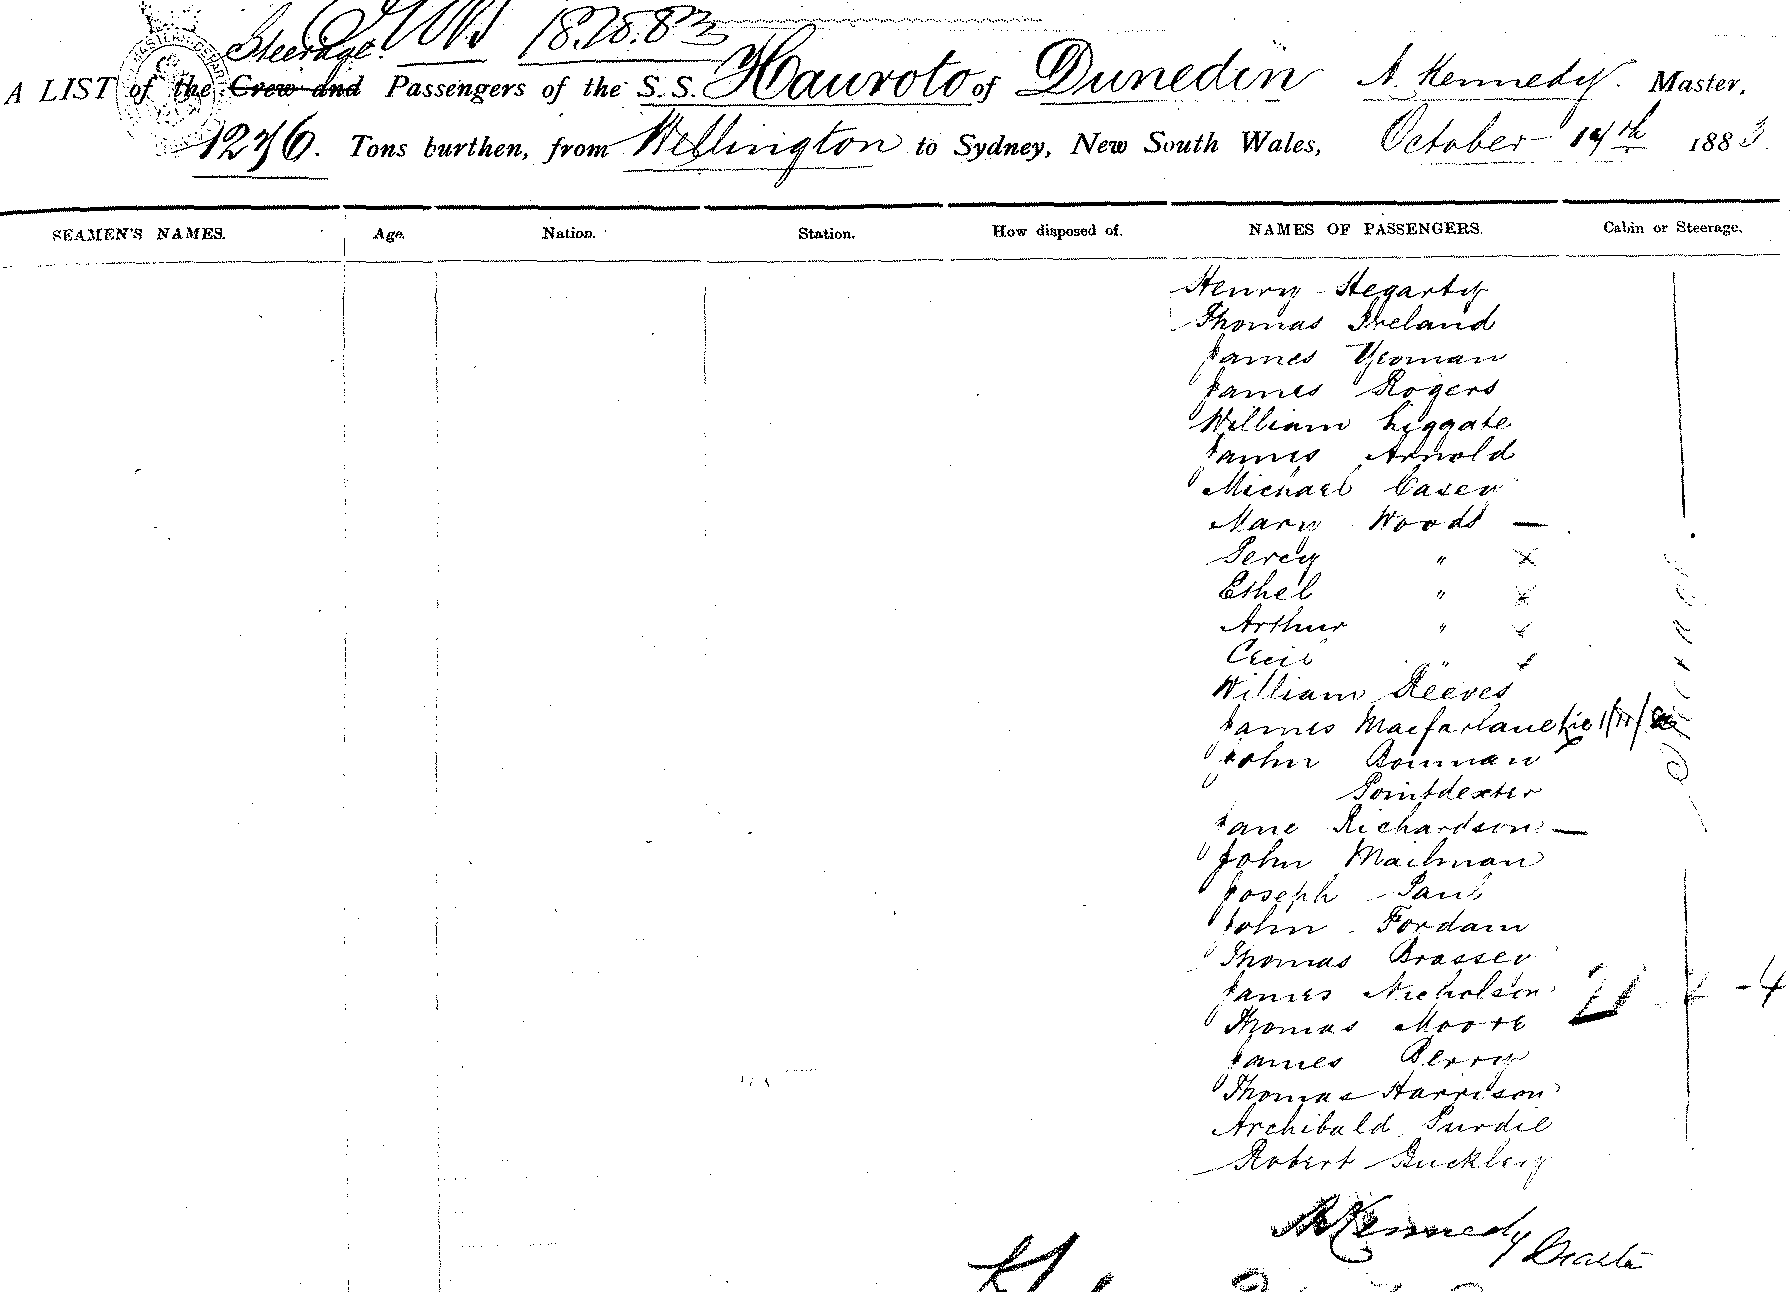 Steerage. 18.10.83
A LIST of the Crew and Passengers of the S.S. Hauroto of Dunedin A. Kennedy. Master,
1276. Tons burthen, from Wellington to Sydney, New South Wales, October 19th 1883
SEAMEN'S NAMES. Age. Nation. Station. How disposed of. NAMES OF PASSENGERS. Cabin or Steerage.
Henry Hegarty
Thomas Ireland
James Yeoman
James Rogers
William Liggate
James Arnold
Michael Casey
Mary Woods —
Percy " x
Ethel " x
Arthur " x
Cecil " x
William Reeves
James Macfarlane
John Bowman
Pointdexter
Jane Richardson —
John Mailman
Joseph Paul
John Fordam
Thomas Brassey
James Nicholson
Thomas Moore
James Berry
Thomas Harrison
Archibald Purdie
Robert Buckley
Steerage
21 - 2 - 4
A Kennedy Master